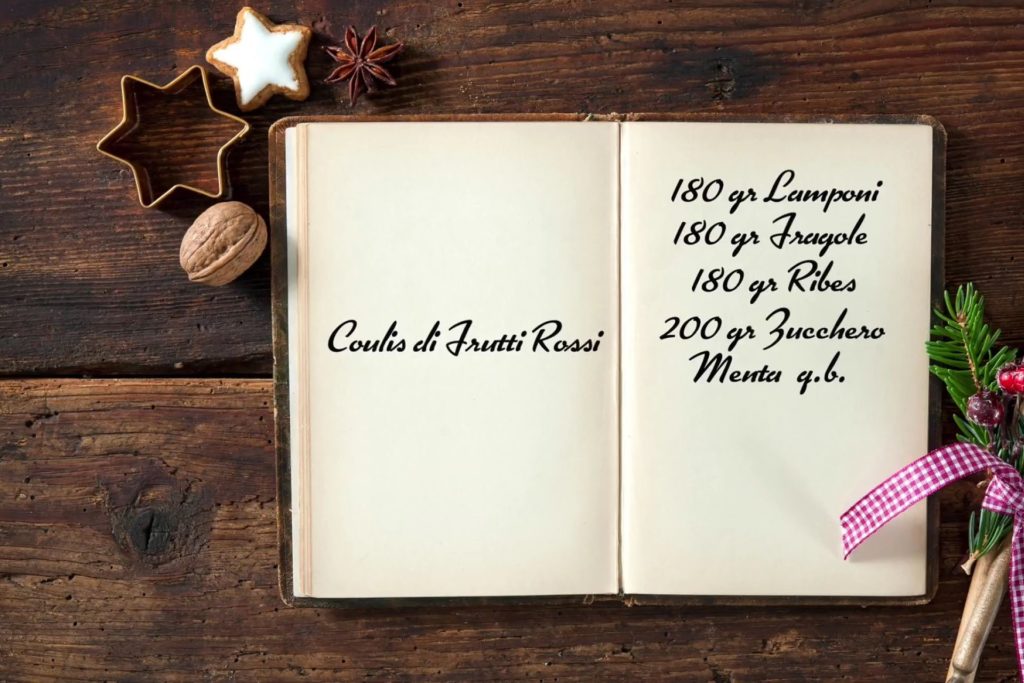 Coulis di Frutti Rossi
180 gr Lamponi
180 gr Fragole
180 gr Ribes
200 gr Zucchero
Menta q.b.